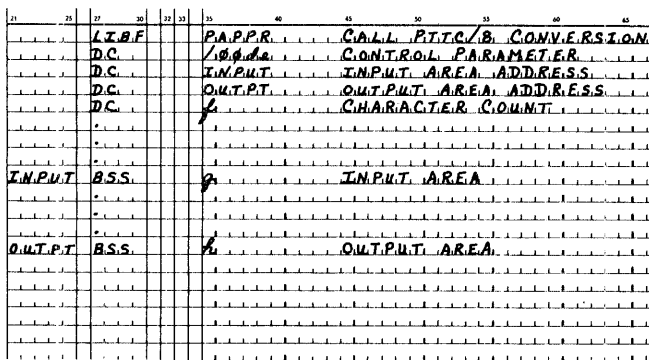 21 25 27 30 32 33 35 40 45 50 55 60 65
LIBF PAPPR CALL PTTC/8 CONVERSION
DC /ØØde CONTROL PARAMETER
DC INPUT INPUT AREA ADDRESS
DC OUTPT OUTPUT AREA ADDRESS
DC f CHARACTER COUNT
.
.
.
INPUT BSS g INPUT AREA
.
.
.
OUTPT BSS h OUTPUT AREA